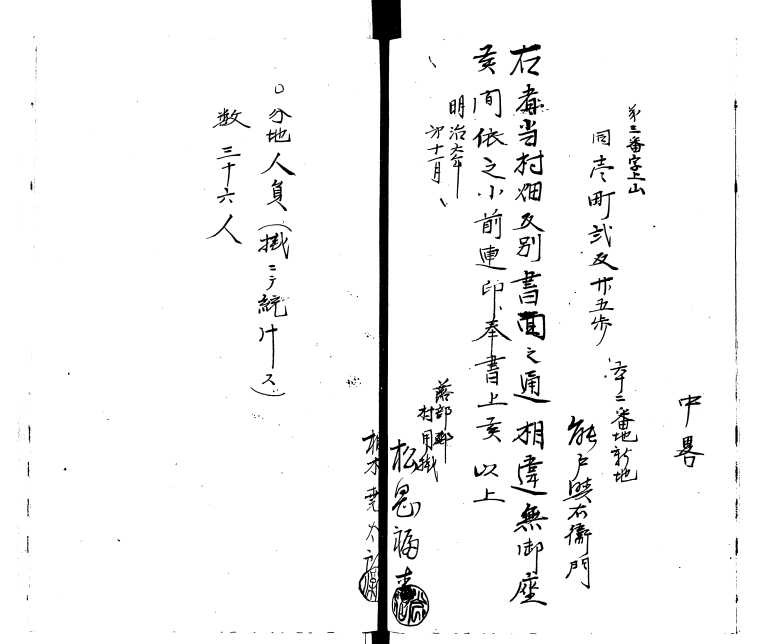 中畧
第三番字上山
同壱町弐反廿五歩
六十二番地新地
能戸與右衛門
右者当村畑反別書面之通相違無御座
候間依之小前連印奉書上候以上
明治六年
第十一月
落部郷
村用掛
松見福
柏木
○分地人員(掛ニテ統計ス)
数三十六人